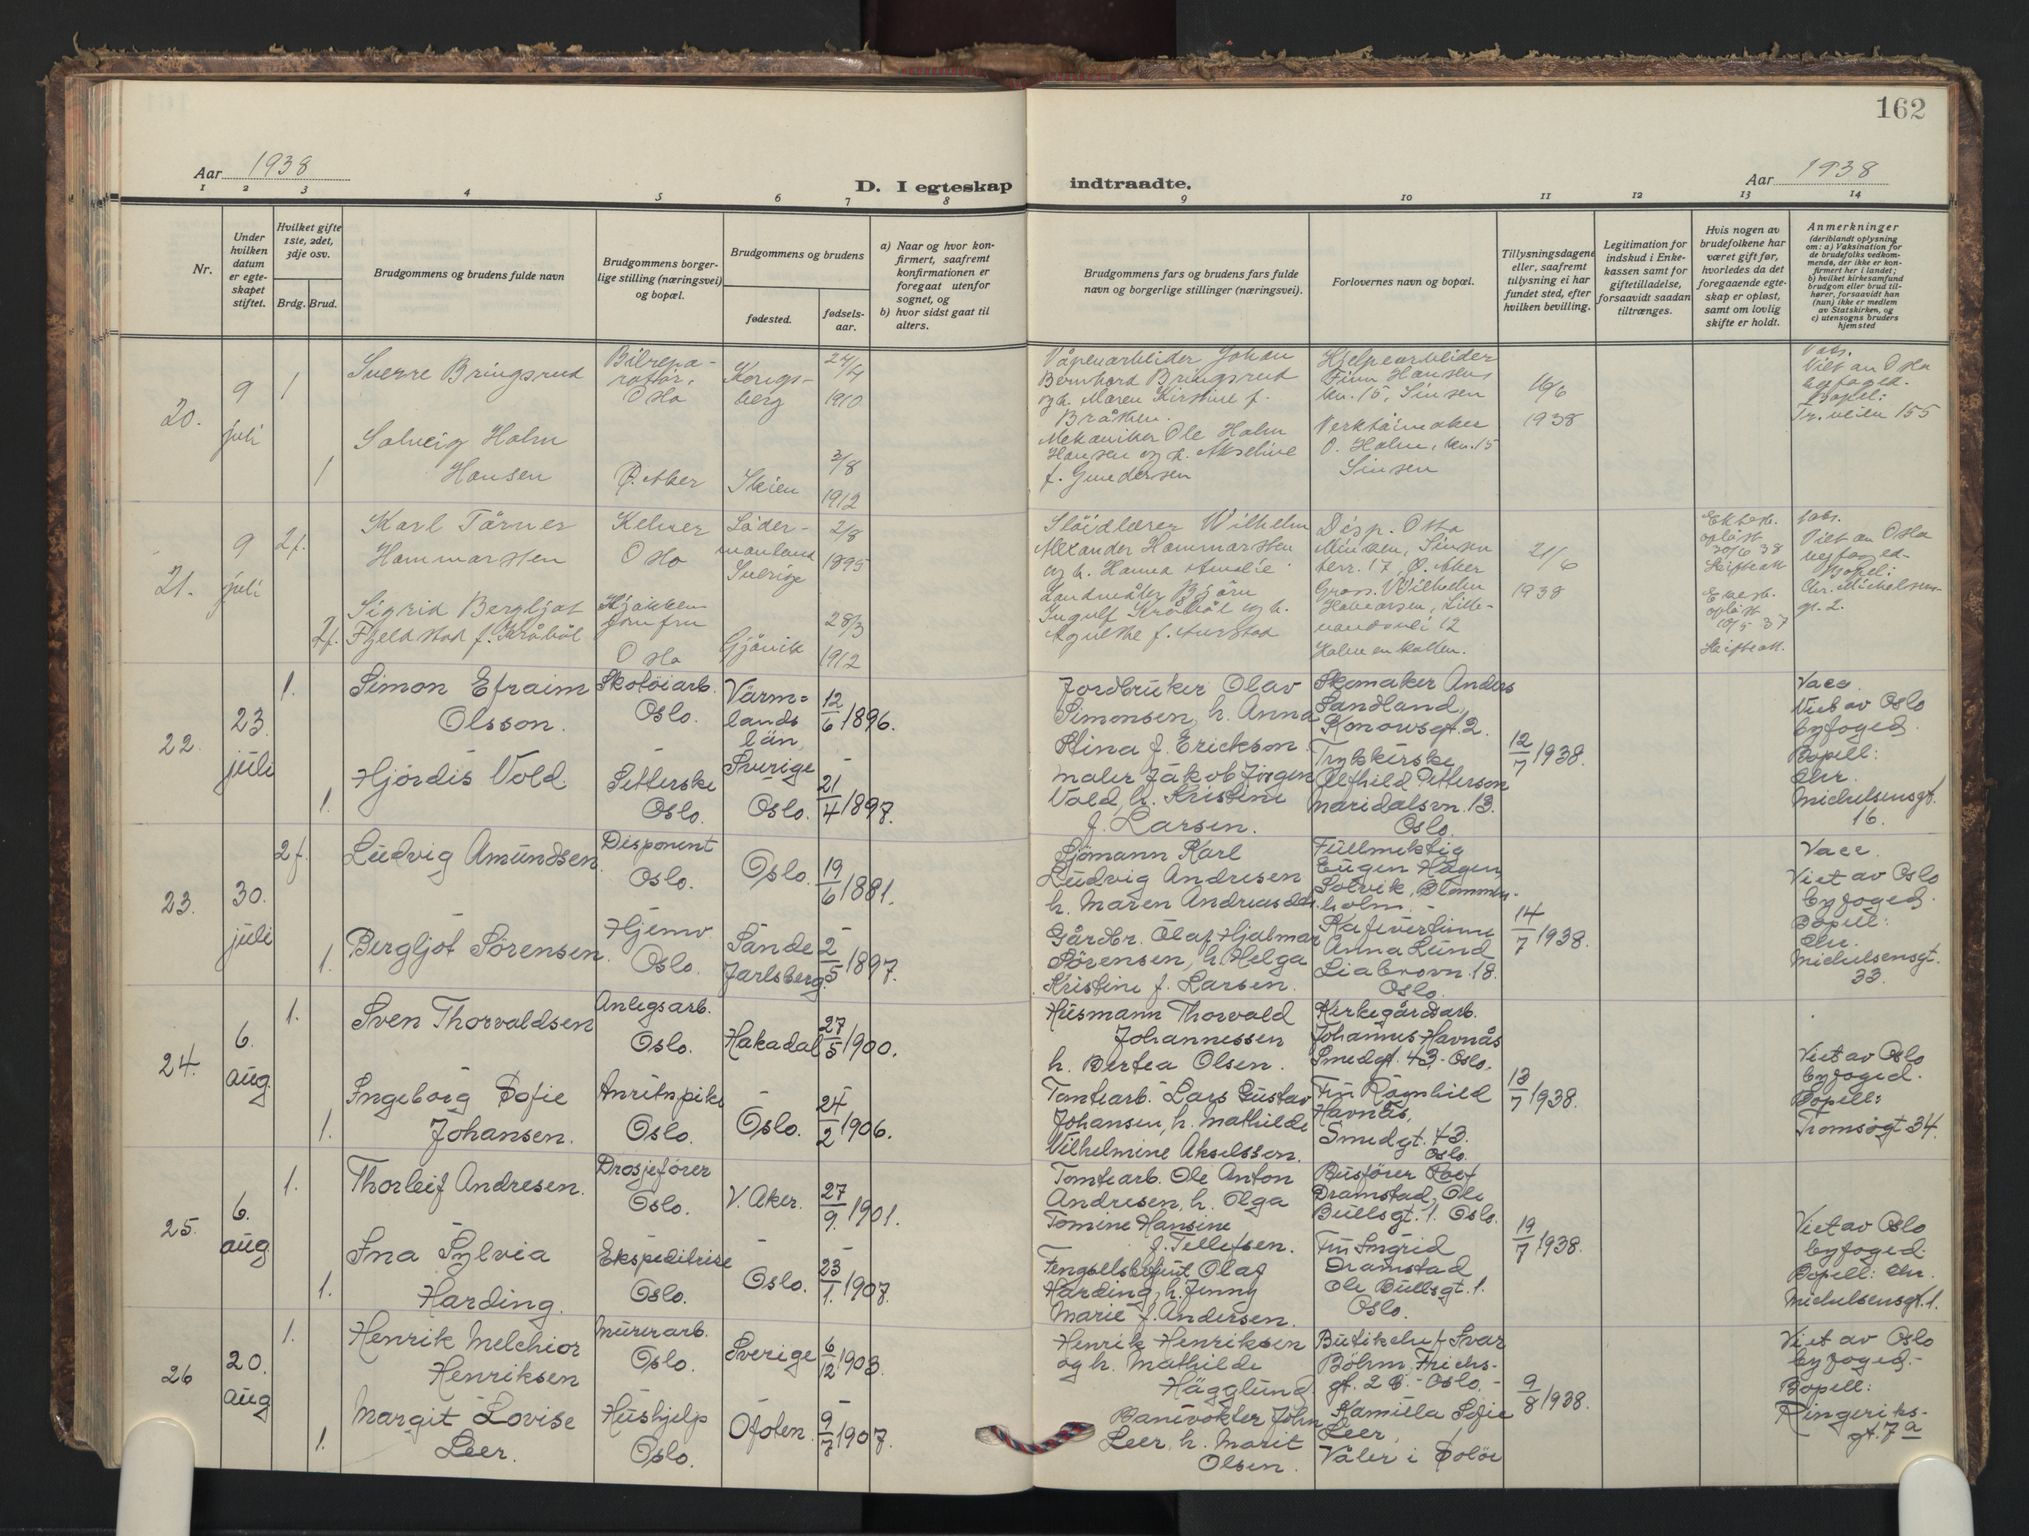 162
Aar 1938
D. I egteskap indtraadte.
Aar 1938
1 2 3 4 5 6 7 8 9 10 11 12 13 14
Nr.
Under
hvilken
datum
er egte-
skapet
stiftet.
Hvilket gifte
1ste, 2det,
3dje osv.
Brdg. Brud.
Brudgommens og brudens fulde navn
Brudgommens borger-
lige stilling (næringsvei)
og bopæl.
Brudgommens og brudens
fødested.
fødsels-
aar.
a) Naar og hvor kon-
firmert, saafremt
konfirmationen er
foregaat utenfor
sognet, og
b) hvor sidst gaat til
alters.
Brudgommens fars og brudens fars fulde
navn og borgerlige stillinger (næringsvei).
Forlovernes navn og bopæl.
Tillysningsdagene
eller, saafremt
tillysning ei har
fundet sted, efter
hvilken bevilling.
Legitimation for
indskud i Enke-
kassen samt for
giftetilladelse,
forsaavidt saadan
tiltrænges.
Hvis nogen av
brudefolkene har
været gift før,
hvorledes da det
foregaaende egte-
skap er opløst,
samt om lovlig
skifte er holdt.
Anmerkninger
(deriblandt oplysning
om: a) Vaksination for
de brudefolks vedkom-
mende, der ikke er kon-
firmert her i landet;
b) hvilket kirkesamfund
brudgom eller brud til-
hører, forsaavidt han
(hun) ikke er medlem
av Statskirken, og
c) utensogns bruders
hjemsted
20.
9
juli
1
Sverre Bringsrud
Bilrepa-
ratør.
Oslo
Kongs-
berg
24/4
1910
Våpenarbeider Johan
Bernhard Bringsrud
og h. Maren Kirstine f.
Bråten.
Hjelpearbeider
Finn Hansen,
kv. 15, Sinsen
16/6
1938
Vaks.
Viet av Oslo
byfoged.
Bopel:
Tr. veien 155
1
Solveig Holm
Hansen
Ø. Aker
Skien
3/8
1912
Mekaniker Ole Holm
Hansen og h. Akseline
f. Gundersen
Verktøimaker
O. Holm, kv. 15
Sinsen
21.
9
juli
2f.
Karl Törner
Hammarsten
Kelner
Oslo
Söder-
manland
Sverige
2/8
1895
Sløidlærer Wilhelm
Alexander Hammarsten
og h. Hanna Amalie
Disp. Otto
Sinsen
terr. 17, Ø. Aker
21/6
1938
Ektesk.
opløst
20/6 38
Skifteatt
Vaks.
Viet av Oslo
byfoged.
Bopel:
Chr. Michelsens-
gt. 2.
2f.
Sigrid Bergljot
Fjeldstad f. Kråbøl
Kjøkken
jomfru
Oslo
Gjøvik
28/3
1912
Landmåler Bjørn
Ingulf Kråbøl og h.
Agnethe f. Aurstad
Gross. Wilhelm
Lille-
12
Holmenkollen.
Ektesk.
opløst
10/5 37
Skifteatt.
22.
23.
juli
1.
Simon Efraim
Olsson.
Skotøiarb.
Oslo.
Värm-
lands
län,
Sverige
12/6 1896.
Jordbruker Olav
Simonsen, h. Anna
Stina f. Erickson.
Skomaker Anders
Sandland,
Konowsgt. 2.
12/7 1938.
Vacc.
Viet av Oslo
byfoged.
Bopell:
Chr.
Michelsensgt.
16.
1.
Hjördis Vold.
Setterske
Oslo.
Oslo.
21/4 1897.
Maler Jakob Jörgen
Vold, h. Kristine
f. Larsen.
Trykkerske
Alfhild Petterson
Maridalsvn. 13.
Oslo.
23.
30.
juli
2f.
Ludvig Amundsen.
Disponent
Oslo.
Oslo.
19/6 1881.
Sjömann Karl
Ludvig Andresen
h. Maren Andreasdtr.
Fullmektig
Eugen Hagen,
Solvik, Blommen-
holm.
14/7 1938.
Vacc.
Viet av Oslo
byfoged.
Bopell:
Chr.
Michelsensgt.
33.
1.
Bergljot Sörensen.
Hjemv.
Oslo.
Sande
Jarlsberg.
2/5 1897.
Gårdbr. Olaf Hjalmar
Sörensen, h. Helga
Kristine f. Larsen.
Kafévertinne
Anna Lund
Liabrovn. 18.
Oslo.
24.
6.
aug.
1.
Sven Thorvaldsen
Anlegsarb.
Oslo.
Hakadal
27/5 1900.
Husmann Thorvald
Johannessen
h. Bertea Olsen.
Kirkegårdsarb.
Johannes Havnås
Smedgt. 43. Oslo.
13/7 1938.
Viet av Oslo
byfoged.
Bopell:
Tromsögt 34.
1.
Ingeborg Sofie
Johansen.
Anretn.pike
Oslo.
Oslo.
24/2 1906.
Tomtearb. Lars Gustav
Johansen, h. Mathilde
Vilhelmine Akselsson.
Fru Ragnhild
Havnås,
Smedgt. 43.
Oslo.
25.
6.
aug.
1.
Thorleif Andresen.
Drosjeförer
Oslo.
V. Aker.
27/9 1901.
Tomtearb. Ole Anton
Andresen, h. Olga
Tomine Hansine
f. Tellefsen.
Busförer Leif
Dramstad, Ole
Bullsgt. 1. Oslo.
19/7 1938.
Viet av Oslo
byfoged.
Bopell: Chr.
Michelsensgt. 1.
1.
Ina Sylvia
Harding.
Ekspeditrise
Oslo.
Oslo.
23/1 1907.
Fengselsbetjent Olaf
Harding, h. Jenny
Marie f. Andersen.
Fru Ingrid
Dramstad
Ole Bullsgt. 1.
Oslo.
26
20.
aug
1.
Henrik Melchior
Henriksen
Murerarb.
Oslo.
Sverige
6/12 1903.
Henrik Henriksen
og h. Mathilde
Hägglund
Butikchef Ivar
Böhm, Frichs-
gt. 2 B. - Oslo. -
9/8 1938.
Viet av Oslo
byfoged. -
Bopell:
Ringeriks-
gt. 7a
1.
Margit Lovise
Leer.
Hushjelp
Oslo.
Ofoten.
9/7 1907.
Banevokter John
Leer, h. Marit
Olsen.
Kamilla Sofie
Leer,
Våler i Solör